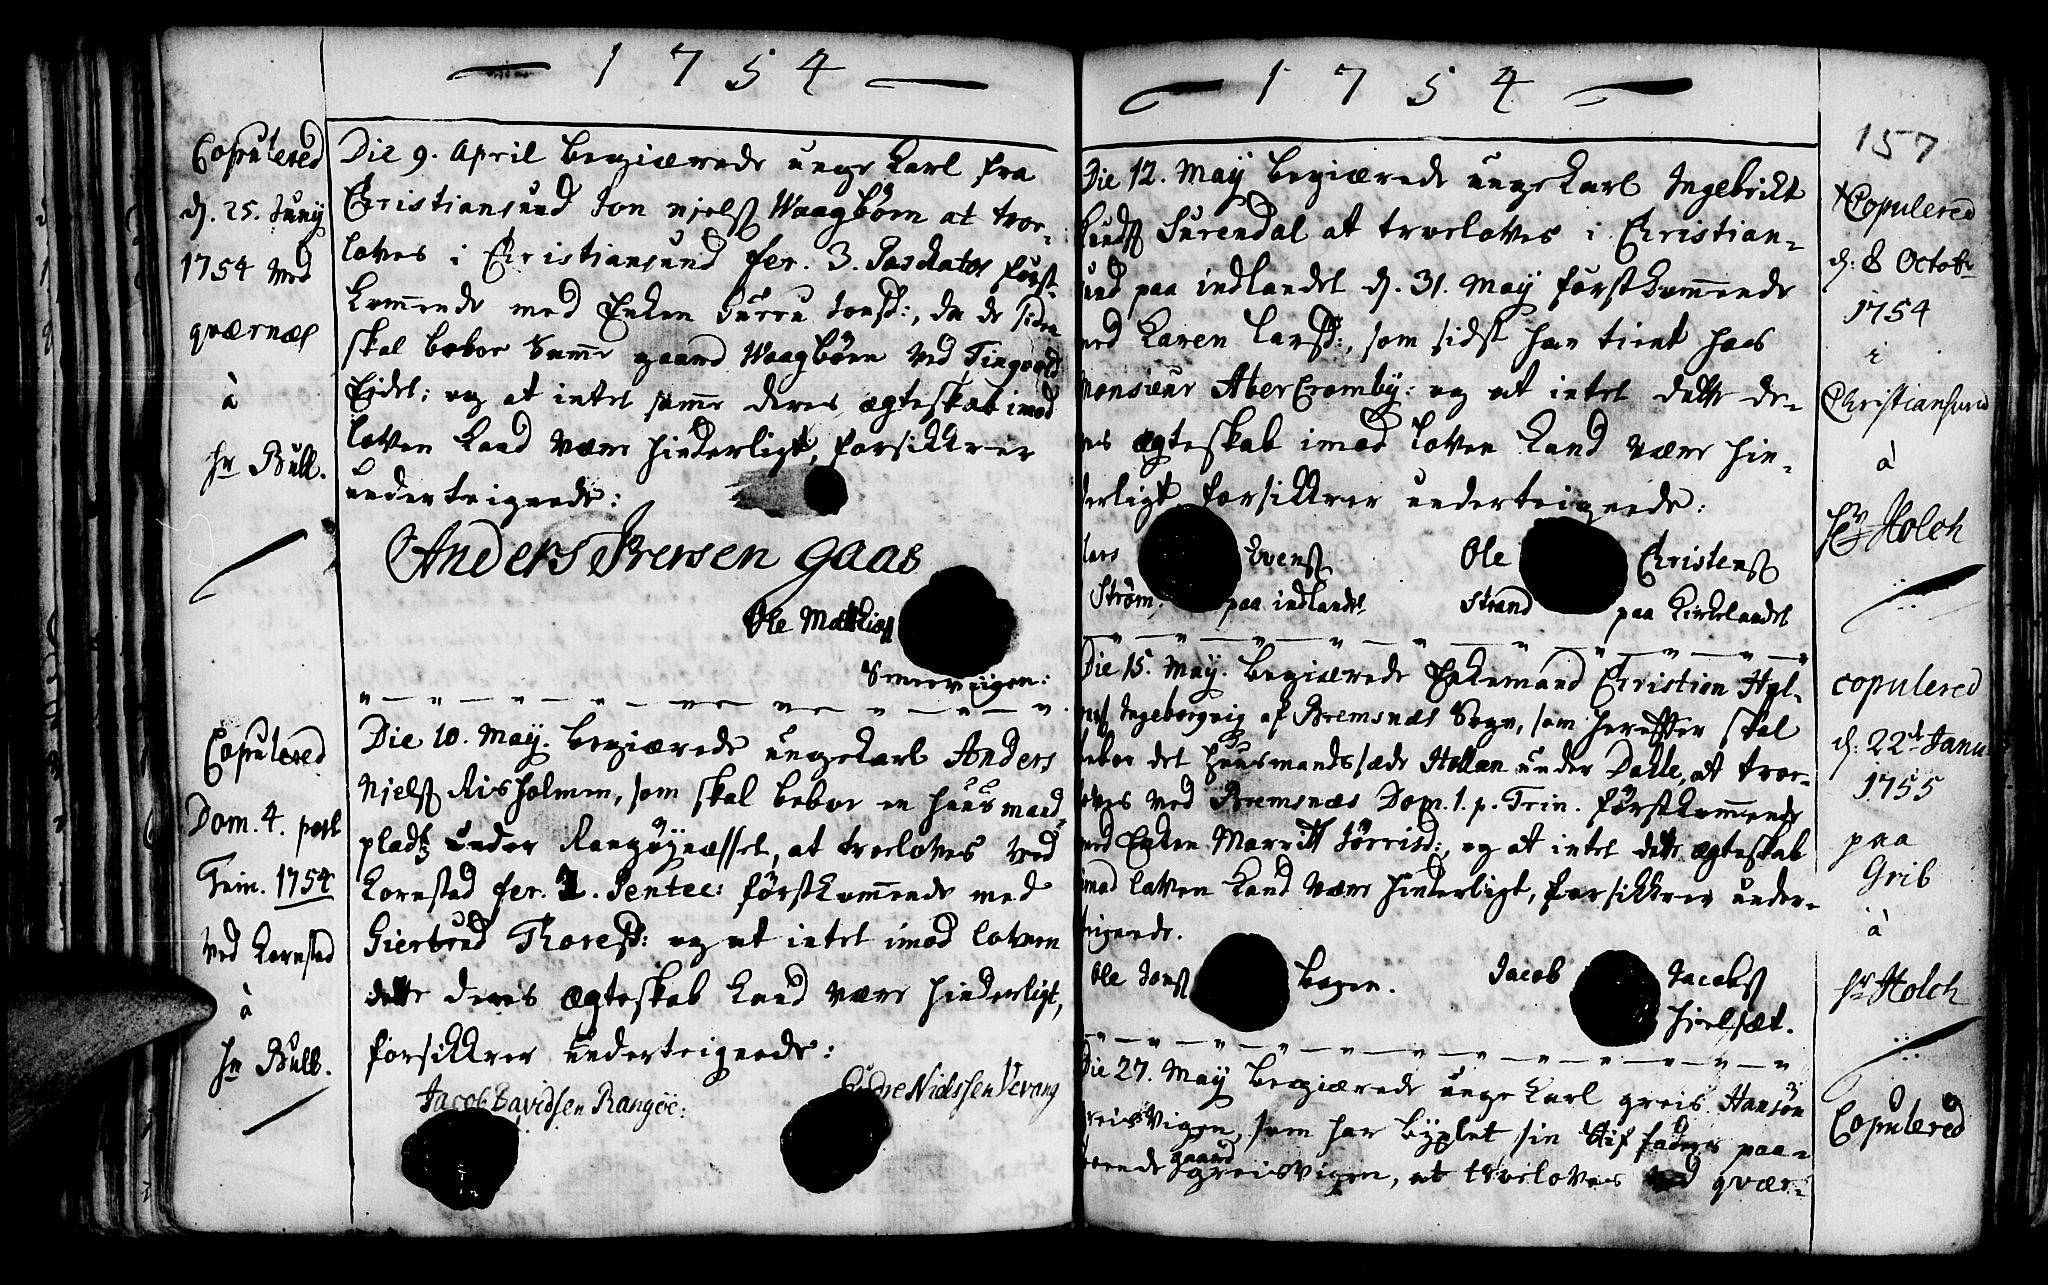 1754
Copulered
d. 25. Juny
1754 ved
qværnæs
à
Hr Bull.
Die 9. April begiærede unge Karl fra
Christiansund Jon Njels: Waagbøen at troe-
loves i Christiansund fer. 3. Paschatos først-
kom̄ende med Enken Surru Jonsd:, da de siden
skal beboe Sam̄e gaard Waagbøen ved Tingvold
Eidet; og at intet sam̄e deres ægteskab imod
loven kand være hinderligt, forsikkrer
underteignede:
Anders Iversen Gaas
Ole Mathias
Copulered
Dom. 4. post
Trin. 1754
ved Kornstad
à
Hr Bull.
Die 10. May. begiærede unge Karl Anders
Njels: Risholmen, som skal beboe en huusmand-
pladtz under Rangøynæsset, at troeloves ved
Kornstad fer. 2. Pentec: førstkom̄ende med
Giertrud Thoresd: og at intet imod loven
dette deres ægteskab kand være hinderligt,
forsikkrer underteignede:
Jacob Davidsen Rangøe:
Endre Nielssen Vevang
1754
157
Die 12. May begiærede unge Karl Ingebrikt
Surendal at troeloves i Christian-
sund paa indlandet d. 31. May førstkom̄ende
med Karen Larsd:, som sidst har tient hos
Monsieur AberCromby: og at intet dette de-
res ægteskab imod loven kand være hin-
derligt forsikkrer underteignede:
Lars Evens:
Strøm. paa indlandet
Ole Christens:
Strand paa Kirkelandet
Copulered
d: 8 Octobr
1754
i
Christiansund
à
Hr Holch
Die 15. May. begiærede Enkemand Christian
Ingeborgvig af Bremsnæs Sogn, som herefter skal
beboe det huusmandssæde Hollan under Dalle, at troe-
loves ved Bremsnæs Dom. 1. p. Trin. førstkom̄ende
med Enken Marritt Siversd:, og at intet dette ægteskab
imod loven kand være hinderligt, forsikkrer under-
teignede.
Ole Jons: Bogen.
Jacob Jacobs:
Hielsæt.
copulered
d: 22d Janu
1755
paa
Grib
à
Hr Holch
Die 27. May begiærede unge Karl Greis Hansøn
Greisvigen, som har byxlet sin Stiffaders paa-
boende gaard Greisvigen, at troeloves ved qvær-
Copulered